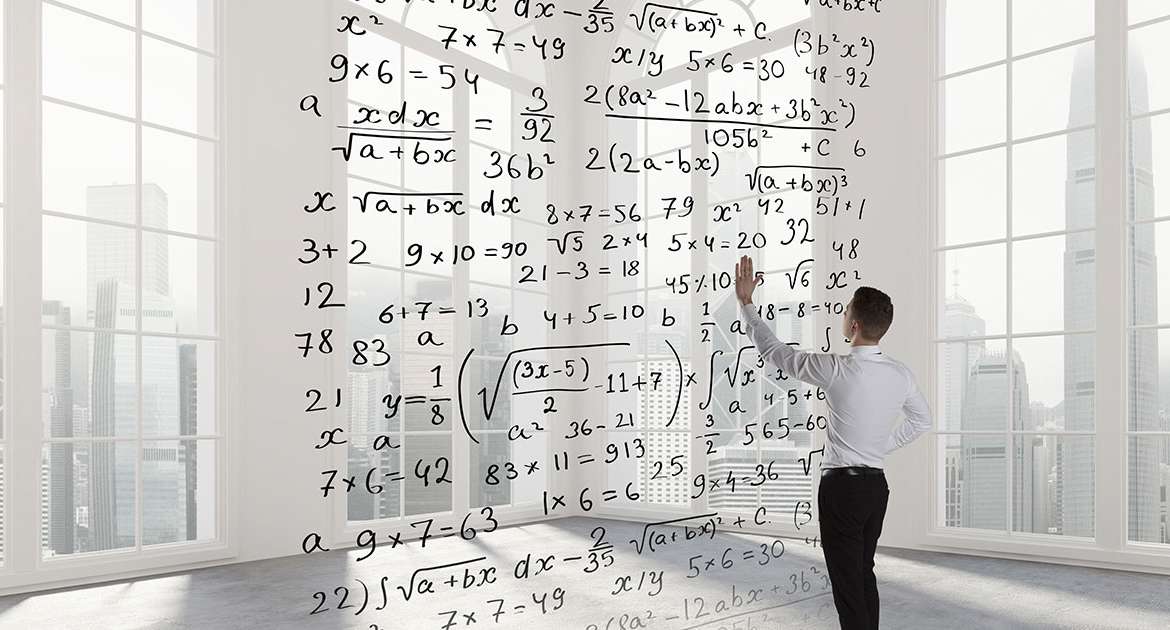 √a+bx dx - 2/35 √(a+bx)² + C. √a+bx+c
x² 7 × 7 = 49 x/y 5 × 6 = 30 (3b²x²)
9 × 6 = 54 48 - 92
a x dx / √a + bx = 3/92 2(8a² - 12abx + 3b²x²) / 105b² + C 6
36b² 2(2a - bx) √(a + bx)³
x √a + bx dx 8 × 7 = 56 79 x² 42 51 + 1
3 + 2 9 × 10 = 90 √5 2 × 4 5 × 4 = 20 32 48
21 - 3 = 18 45 % 10 5 √6 x²
12 6 + 7 = 13 b 4 + 5 = 10 b 1/2 a 18 - 8 = 40
78 83 a ∫
21 y = 1/8 (√(3x - 5)/2 - 11 + 7) × ∫ √x³ - x
a 4 - 5 + 6
x a a² 36 - 21 - 3/2 565 - 60
7 × 6 = 42 83 * 11 = 913 25 9 × 4 = 36 √
1 × 6 = 6
a 9 × 7 = 63
22) ∫ √a + bx dx - 2/35 √(a + bx)² + C. (3
7 × 7 = 49 x/y 5 × 6 = 30 4
2(8a² - 12abx + 3b²x
105b²